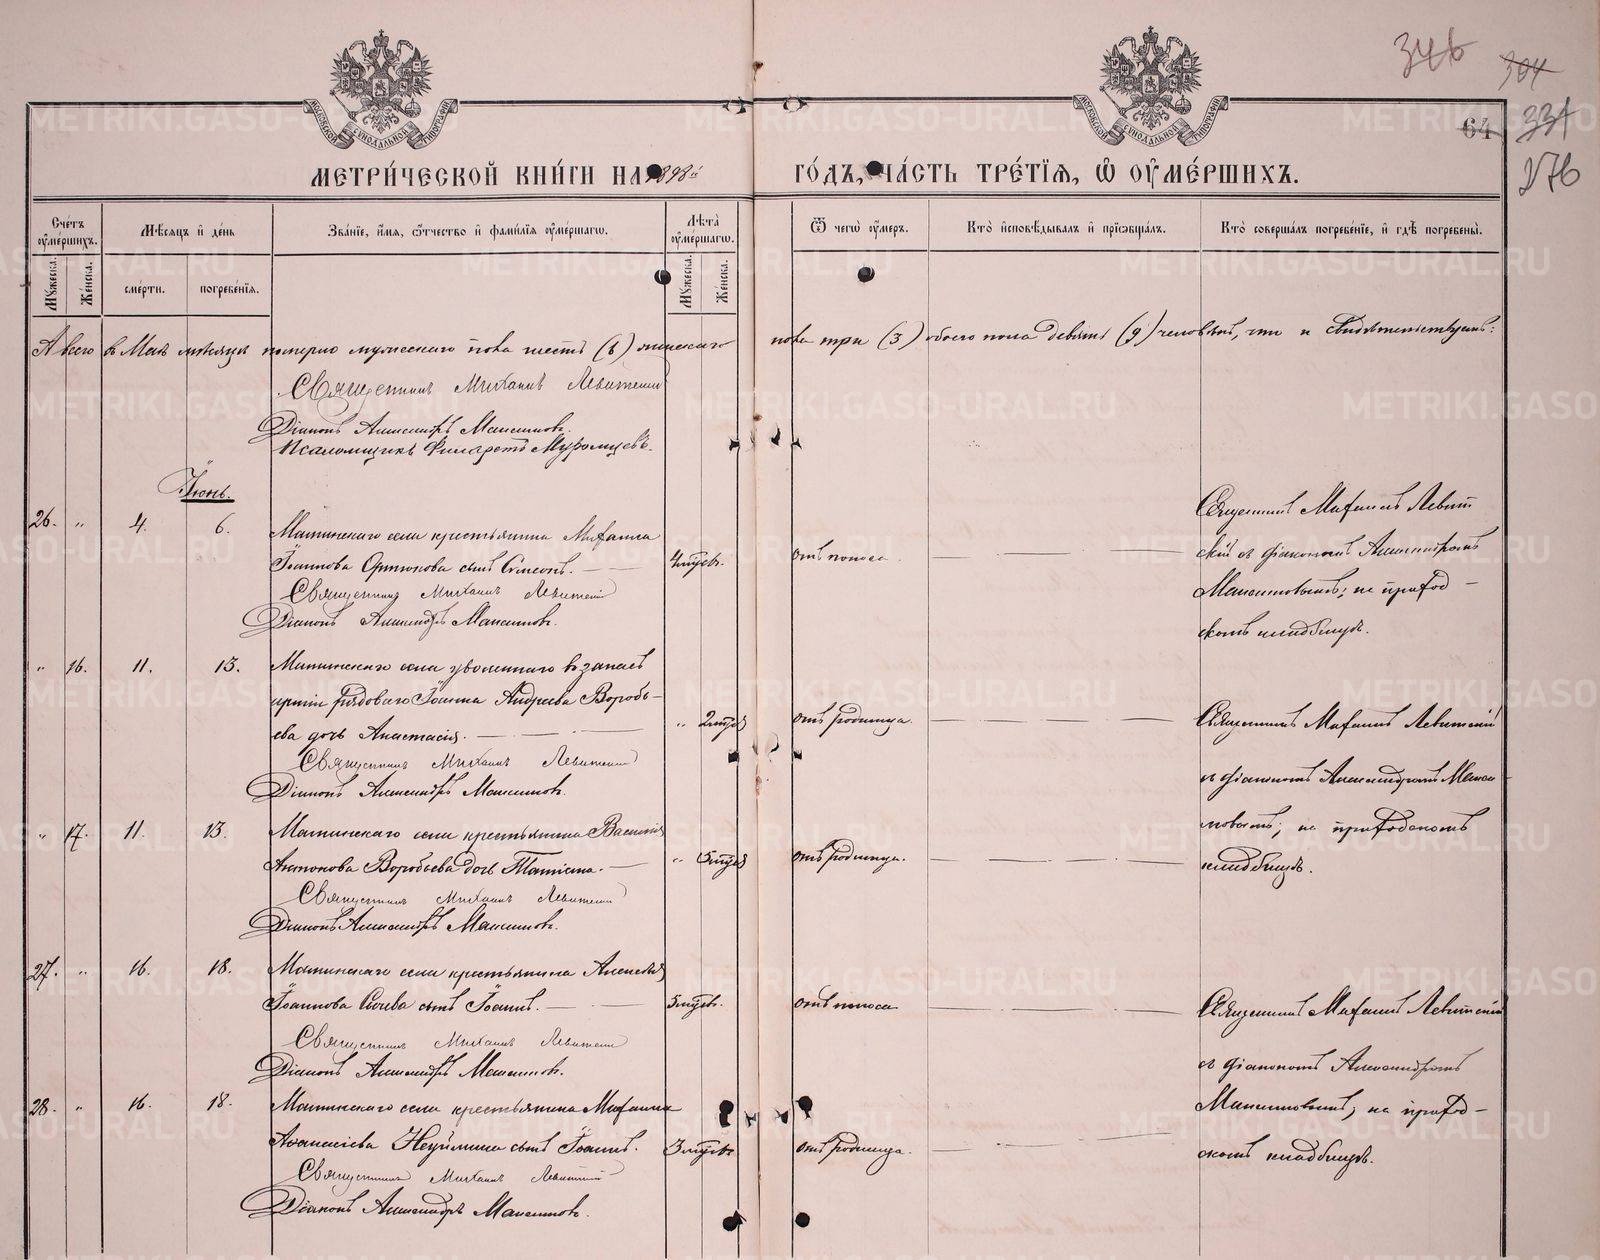 346
304
334
276
64
МОСКОВСКОЙ СѴНОДАЛЬНОЙ ТИПОГРАФІИ
МОСКОВСКОЙ СѴНОДАЛЬНОЙ ТИПОГРАФІИ
МЕТРИ́ЧЕСКОЙ КНИ́ГИ НА 1898й ГО́ДЪ, ЧА́СТЬ ТРЕ́ТІѦ, Ѡ ОУ҆МЕ́РШИХЪ.
Сче́тъ оу҆ме́ршихъ.
Мꙋ́жеска.
Же́нска.
Мѣ́сѧцъ и҆ де́нь
сме́рти.
погребе́нїѧ.
Зва́нїе, и҆́мѧ, ѻ҆́тчество и҆ фами́лїѧ оу҆ме́ршагѡ.
Лѣ́та оу҆ме́ршагѡ.
Мꙋ́жеска.
Же́нска.
Ѿ чегѡ̀ оу҆́меръ.
Кто̀ и҆сповѣ́дывалъ и҆ прїѡбща́лъ.
Кто̀ соверша́лъ погребе́нїе, и҆ гдѣ̀ погребены̀.
А всего въ Маѣ мѣсяцѣ померло мужескаго пола шесть (6) женскаго пола три (3) обоего пола девять (9) человѣкъ, что и свидѣтельствуемъ:
Священникъ Михаилъ Левитскій
Діаконъ Александръ Максимовъ.
Псаломщикъ Филаретъ Муромцевъ.
Іюнь.
26. „ 4. 6.
Маминскаго села крестьянина Михаила
Іоаннова сынъ Симеонъ.
Священникъ Михаилъ Левитскій
Діаконъ Александръ Максимовъ.
4 мѣс.
отъ поноса
Священникъ Михаилъ Левит
скій съ діакономъ Александромъ
Максимовымъ; на приход
скомъ кладбищѣ.
„ 16. 11. 13.
Маминскаго села уволеннаго въ запасъ
арміи рядоваго Іоанна Андреева Воробь-
ева дочь Анастасія.
Священникъ Михаилъ Левитскій
Діаконъ Александръ Максимовъ.
„ 2 мѣс
отъ родимца.
Священникъ Михаилъ Левитскій
съ діакономъ Александромъ Макси
мовымъ; на приходскомъ
кладбищѣ.
„ 17. 11. 13.
Маминскаго села крестьянина Василія
Антонова Воробьева дочь Таисія.
Священникъ Михаилъ Левитскій
Діаконъ Александръ Максимовъ.
„ 5 мѣс
отъ родимца.
27. „ 16. 18.
Маминскаго села крестьянина Алексѣя
Іоаннова Сычева сынъ Іоаннъ.
Священникъ Михаилъ Левитскій
Діаконъ Александръ Максимовъ.
5 мѣс.
отъ поноса
Священникъ Михаилъ Левитскій
съ діакономъ Александромъ
Максимовымъ; на приход-
скомъ кладбищѣ.
28. „ 16. 18.
Маминскаго села крестьянина Михаила
Аѳанасіева Неуймина сынъ Іоаннъ.
Священникъ Михаилъ Левитскій
Діаконъ Александръ Максимовъ.
3 мѣс
отъ родимца.
METRIKI.GASO-URAL.RU